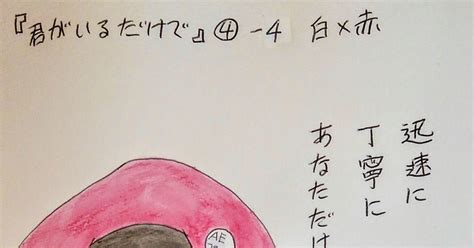 『君がいるだけで』④-4 白×赤
迅速に
丁寧に
あなただけ
AE